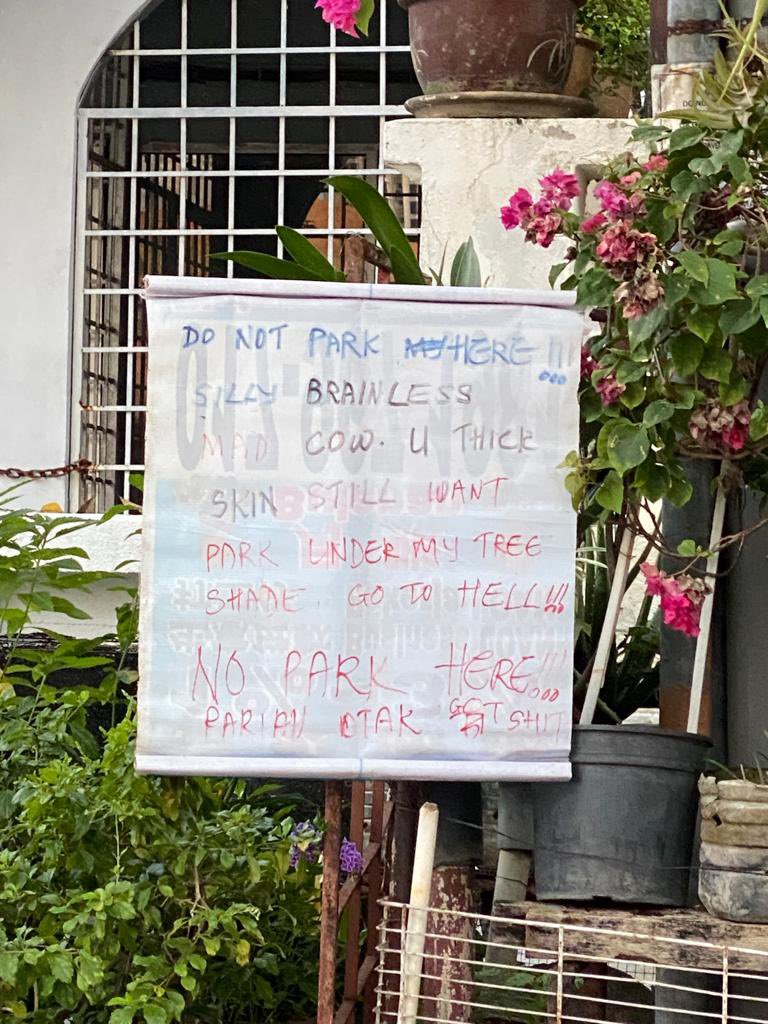 DO NOT PARK HERE!!!
SILLY BRAINLESS
MAD COW. U THICK
SKIN STILL WANT
PARK UNDER MY TREE
SHADE. GO TO HELL!!!
NO PARK HERE!!!
PARIAH OTAK GOT SHIT